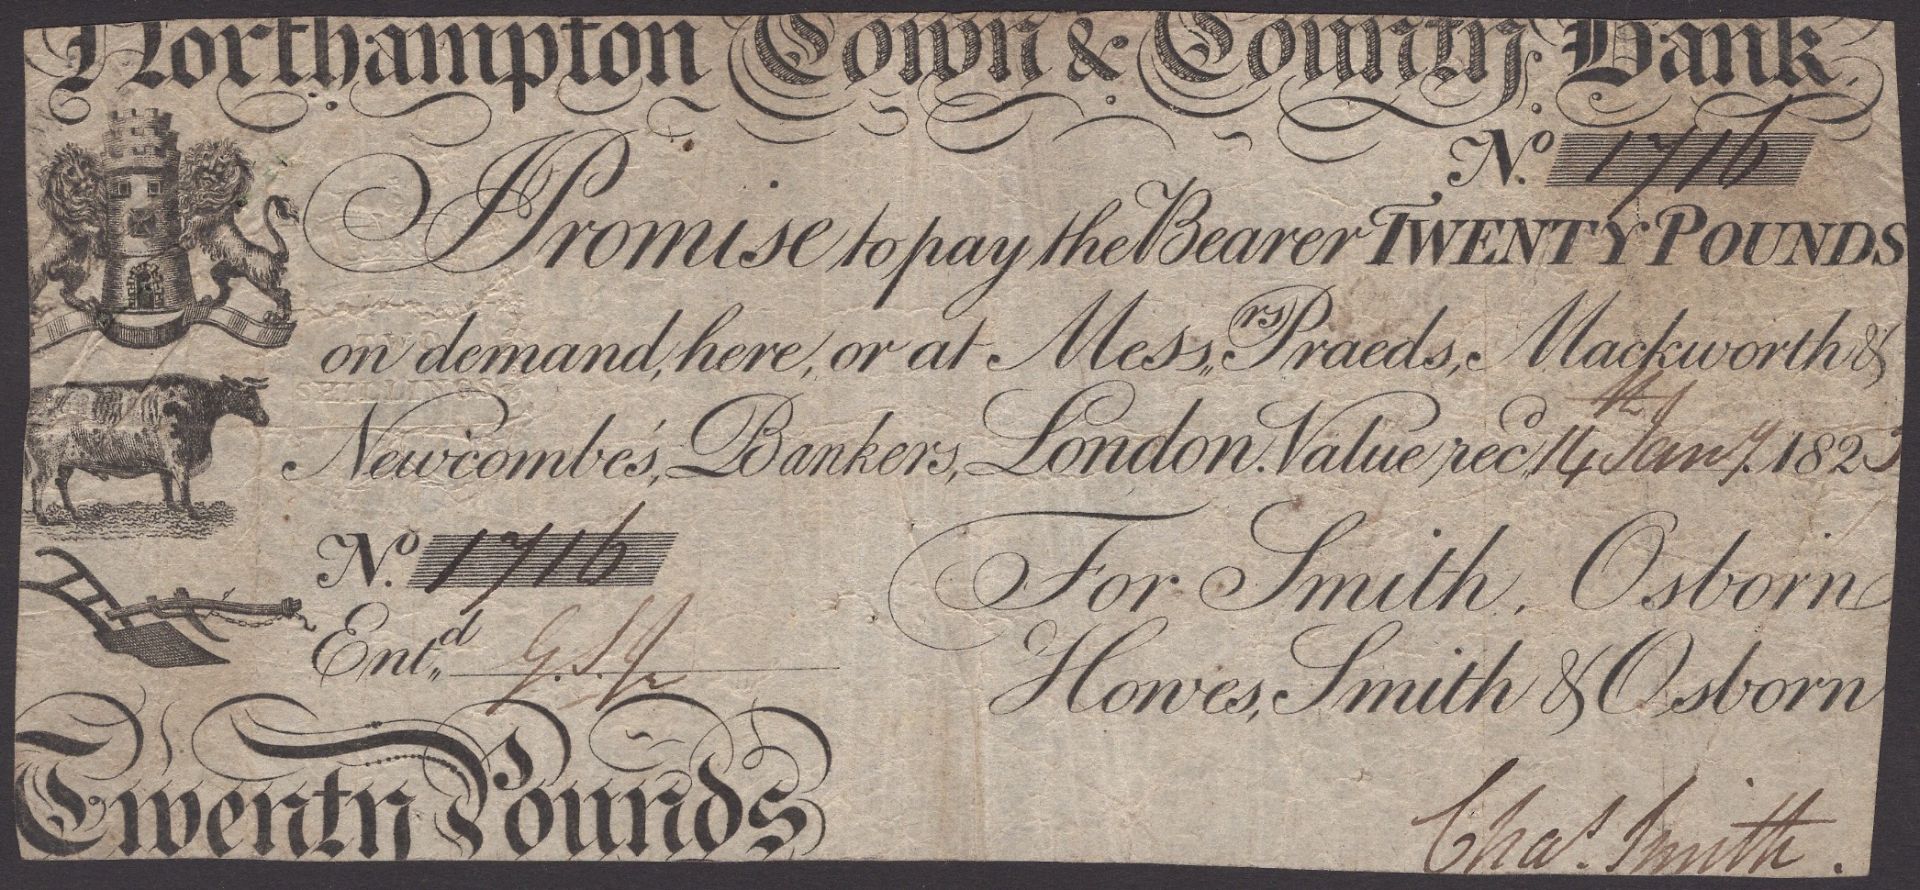 Northampton Town & County Bank.
No. 1716
I Promise to pay the Bearer TWENTY POUNDS
on demand, here, or at Messrs. Praeds, Mackworth &
Newcombe's, Bankers, London. Value recd. 14th Jany. 1823
No. 1716
For Smith, Osborn
Entd.
Howes, Smith & Osborn
Twenty Pounds
Chas. Smith.